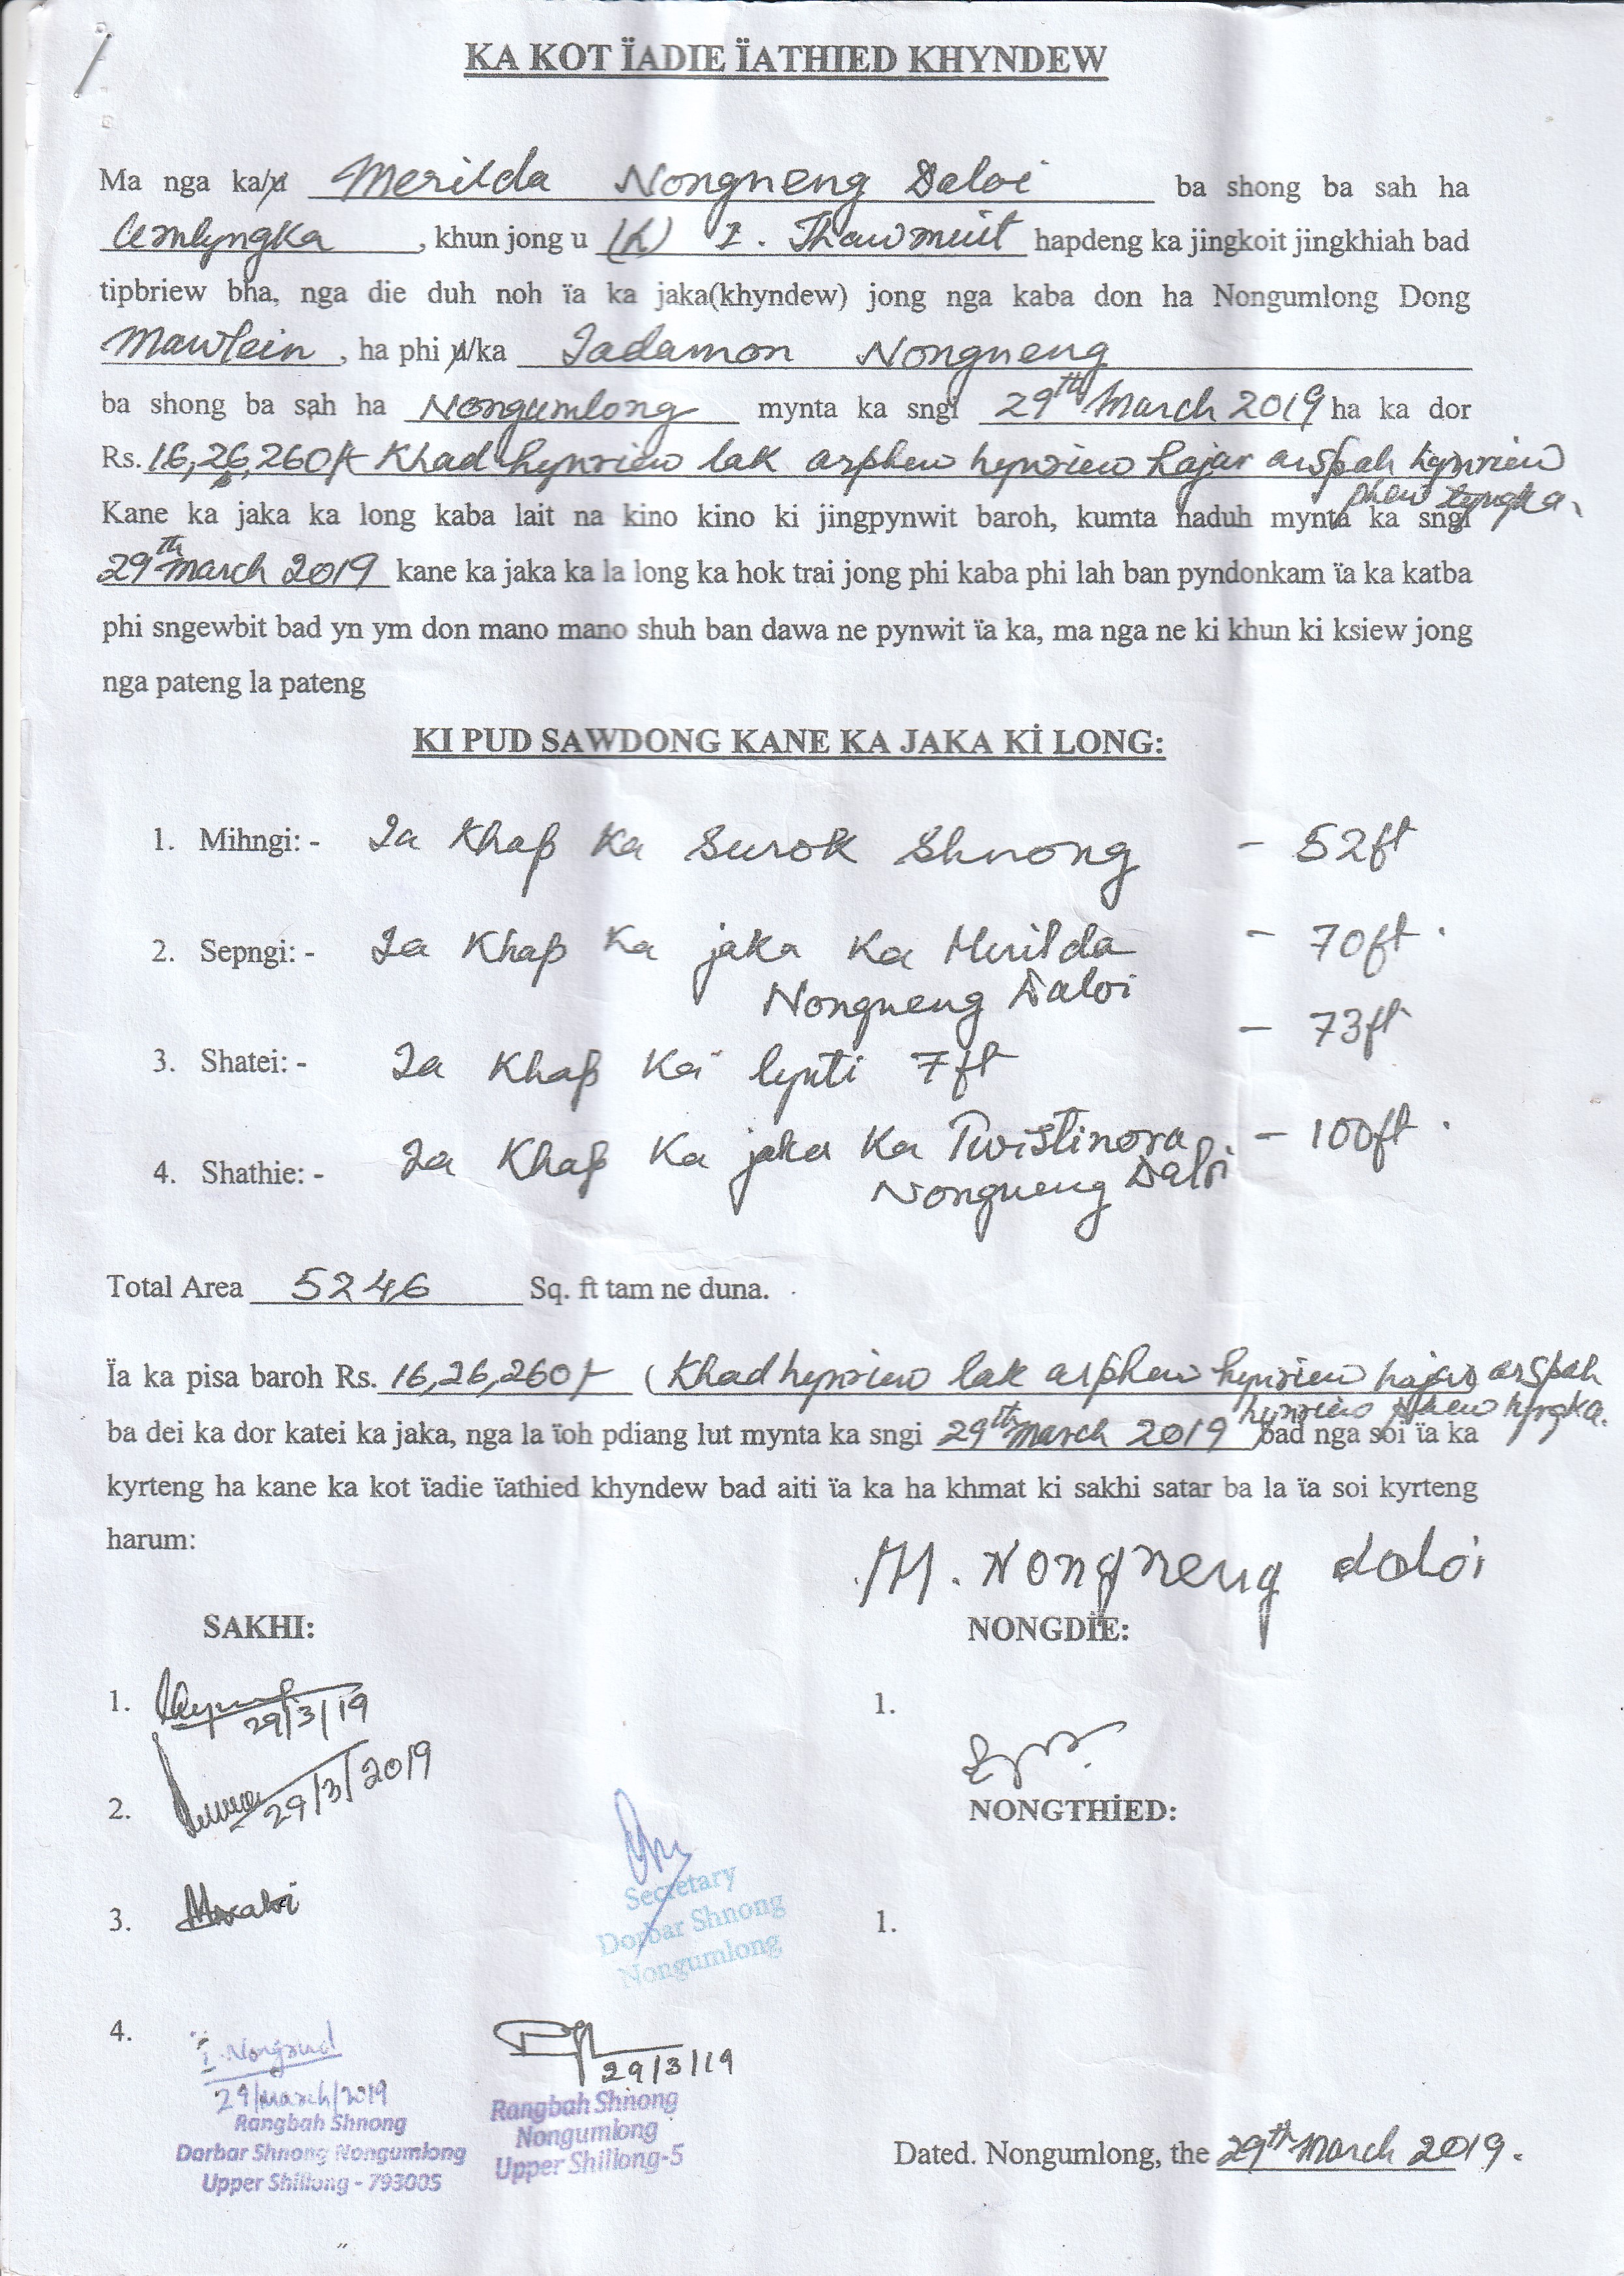 KA KOT ÏADIE ÏATHIED KHYNDEW
Ma nga ka/u Merilda Nongneng Daloi ba shong ba sah ha
Umlyngka, khun jong u (L) I. Thawmuit hapdeng ka jingkoit jingkhiah bad
tipbriew bha, nga die duh noh ïa ka jaka(khyndew) jong nga kaba don ha Nongumlong Dong
Mawlein, ha phi u/ka Iadamon Nongneng
ba shong ba sah ha Nongumlong mynta ka sngi 29th March 2019 ha ka dor
Rs. 16,26,260/- Khadhynriew lak arphew hynriew hajar arspah hynriew
phew tyngka.
Kane ka jaka ka long kaba lait na kino kino ki jingpynwit baroh, kumta naduh mynta ka sngi
29th March 2019 kane ka jaka ka la long ka hok trai jong phi kaba phi lah ban pyndonkam ïa ka katba
phi sngewbit bad yn ym don mano mano shuh ban dawa ne pynwit ïa ka, ma nga ne ki khun ki ksiew jong
nga pateng la pateng
KI PUD SAWDONG KANE KA JAKA Kİ LONG:
1. Mihngi: - Ia Khap Ka Surok Shnong - 52ft
2. Sepngi: - Ia Khap Ka jaka Ka Merilda - 70ft.
Nongneng Daloi
3. Shatei: - Ia Khap Ka lynti 7ft - 73ft
4. Shathie: - Ia Khap Ka jaka Ka Twistinora - 100ft.
Nongneng Daloi
Total Area 5246 Sq. ft tam ne duna.
Ïa ka pisa baroh Rs. 16,26,260/- (Khadhynriew lak arphew hynriew hajar arspah
hynriew phew tyngka.
ba dei ka dor katei ka jaka, nga la ïoh pdiang lut mynta ka sngi 29th March 2019 bad nga soi ïa ka
kyrteng ha kane ka kot ïadie ïathied khyndew bad aiti ïa ka ha khmat ki sakhi satar ba la ïa soi kyrteng
harum:
M. Nongneng doloi
SAKHI: NONGDİE:
1. 29/3/19 1.
2. 29/3/2019 NONGTHİED:
3. 1.
Secretary
Dorbar Shnong
Nongumlong
4.
29/March/2019
Rangbah Shnong
Darbar Shnong Nongumlong
Upper Shillong - 793005
29/3/19
Rangbah Shnong
Nongumlong
Upper Shillong-5
Dated. Nongumlong, the 29th March 2019.